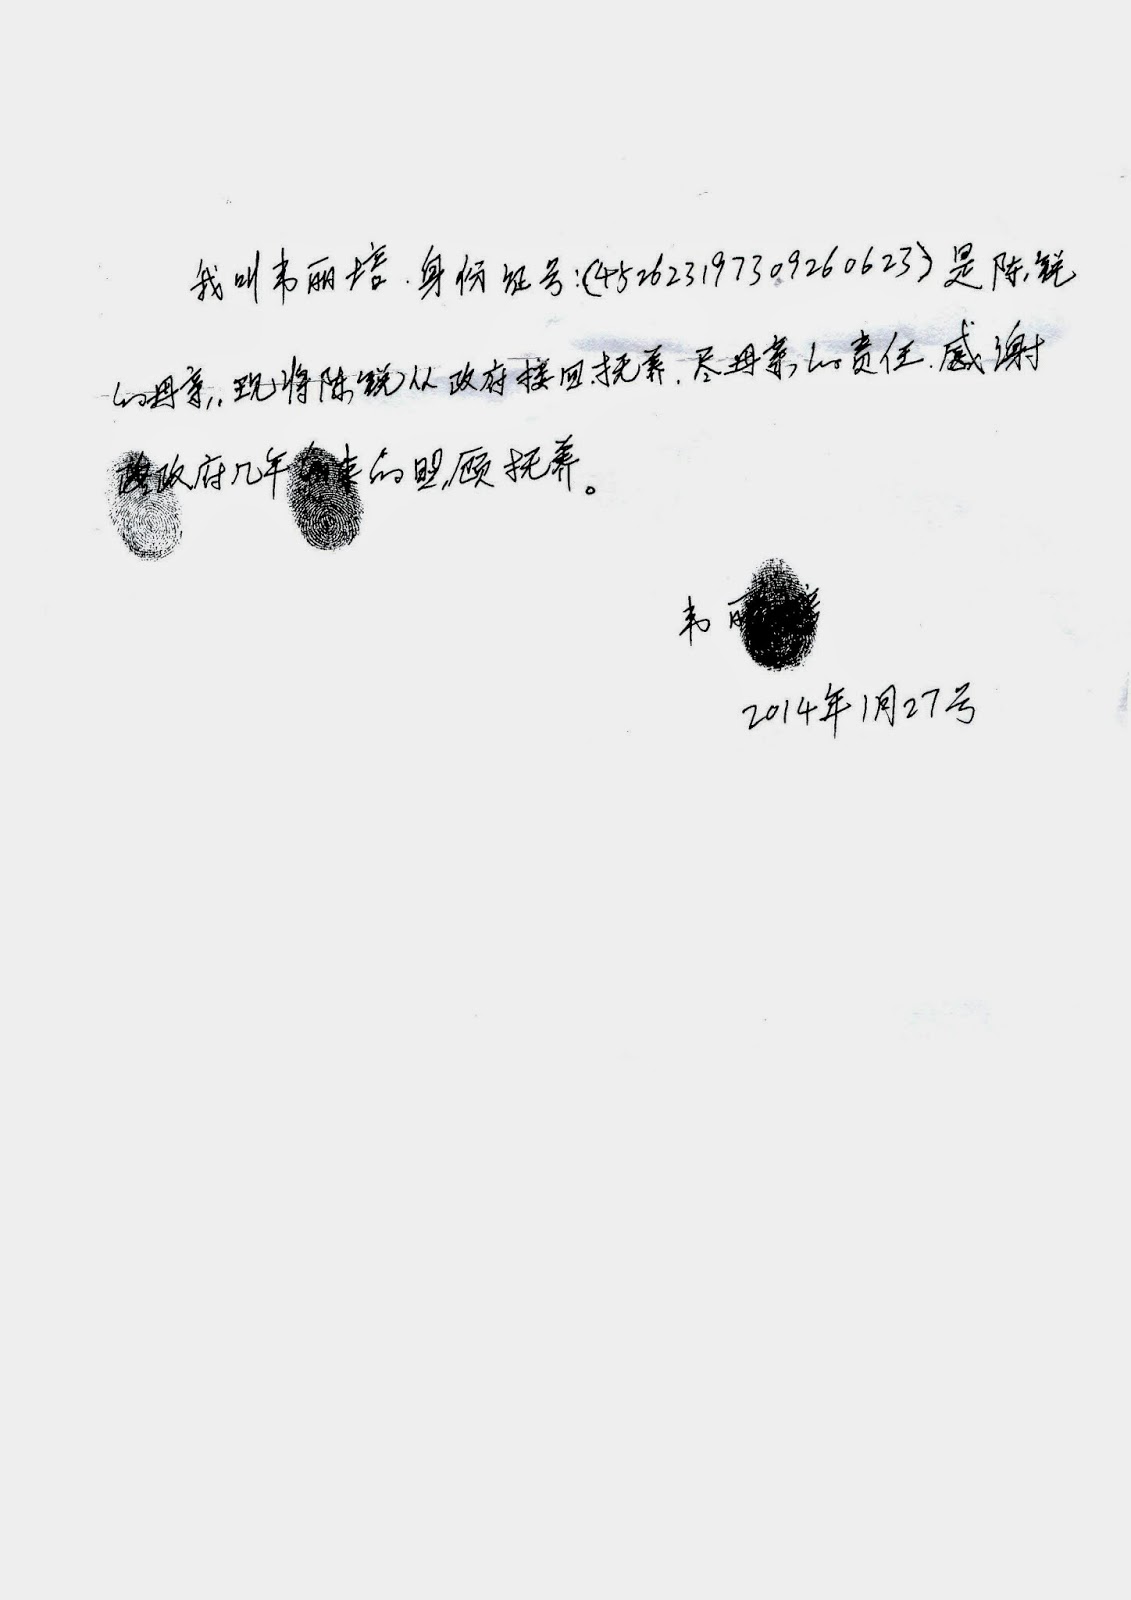 我叫韦丽培.身份证号:(452623197309260623)是陈锐
的母亲,.现将陈锐从政府接回抚养.尽母亲的责任.感谢
政府几年来的照顾抚养。
韦丽培
2014年1月27号